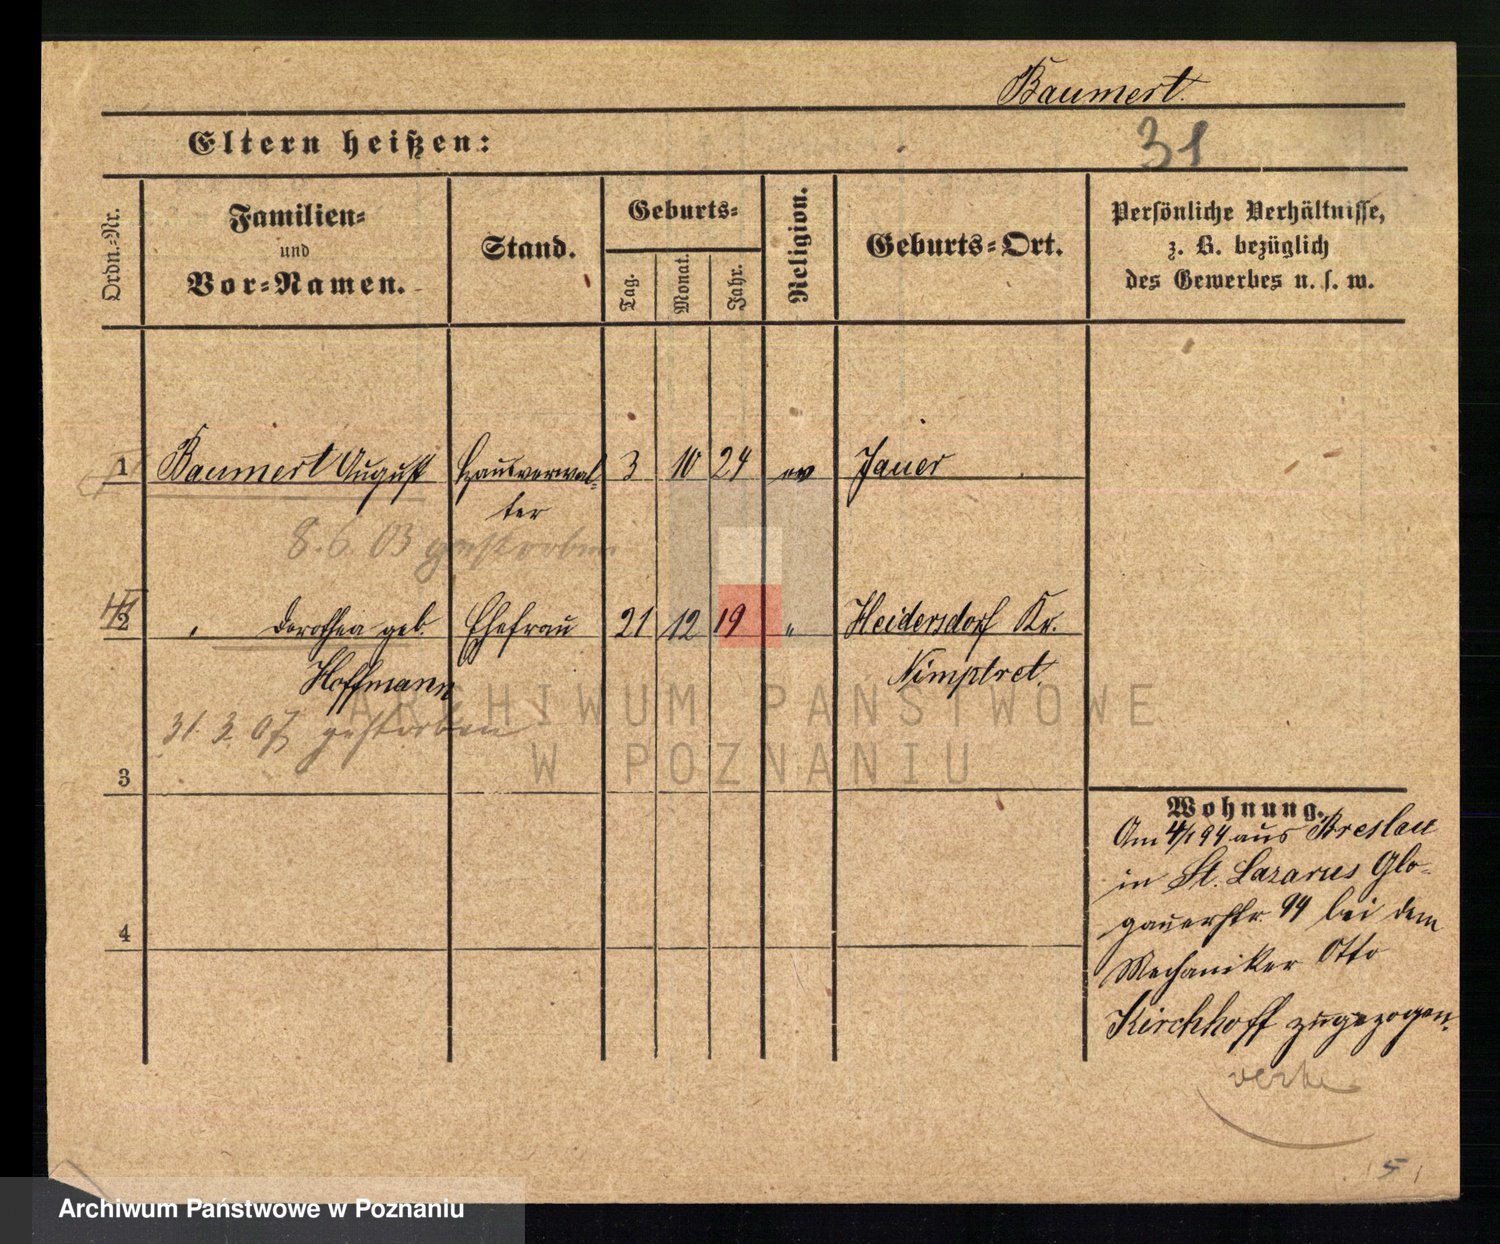 Baumert.
Eltern heißen:
31
Ordn.-Nr.
Familien-
und
Vor-Namen.
Stand.
Geburts-
Tag.
Monat.
Jahr.
Religion.
Geburts-Ort.
Persönliche Verhältnisse,
z. B. bezüglich
des Gewerbes u. s. w.
1 Baumert August Hausverwal- 3 10 24 ev Jauer
ter
8. 6. 03 gestorben
2 " Dorothea geb. Ehefrau 21 12 19 " Heidersdorf Kr.
Hoffmann Nimptret.
31. 3. 07 gestorben
ARCHIWUM PAŃSTWOWE
W POZNANIU
3
Wohnung.
Am 4/1 94 aus Breslau
in St. Lazarus Glo-
gauerstr. 94 bei dem
4
Mechaniker Otto
Kirchhoff zugezogen.
5
Archiwum Państwowe w Poznaniu